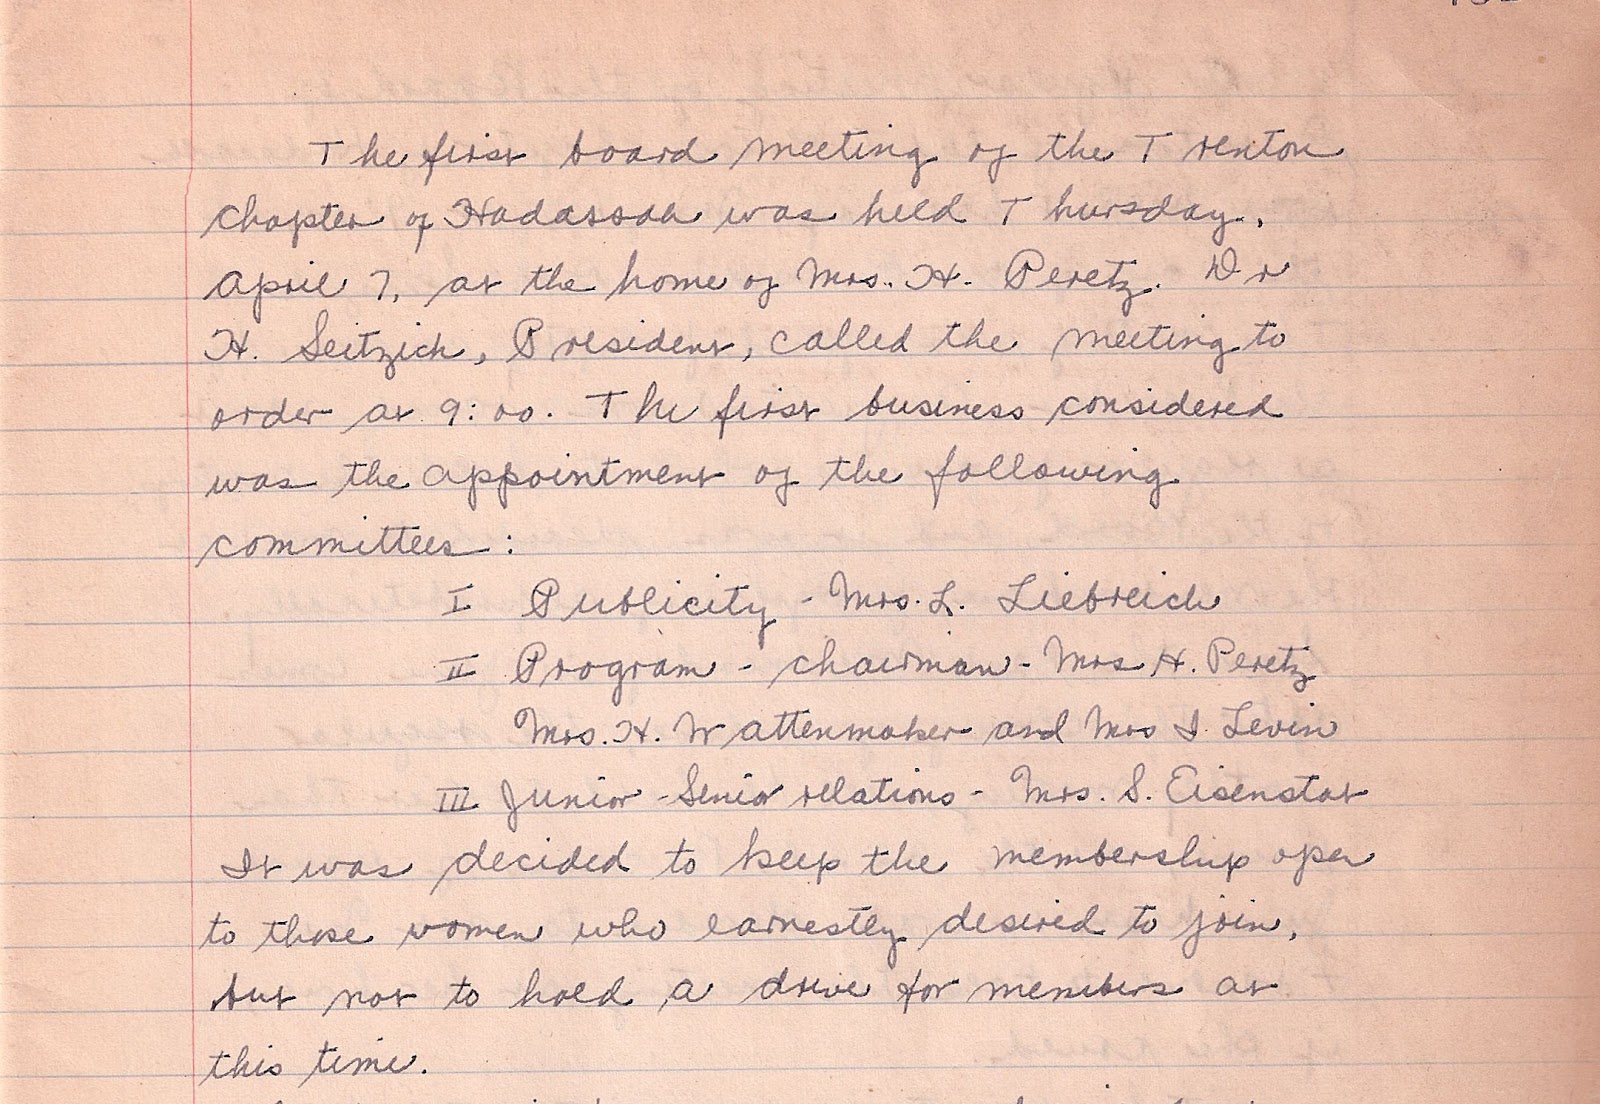 The first board meeting of the Trenton
chapter of Hadassah was held Thursday,
April 7, at the home of Mrs. H. Peretz. Dr
H. Seitzich, President, called the meeting to
order at 9:00. The first business considered
was the appointment of the following
committees:
I Publicity - Mrs. L. Liebreich
II Program - chairman - Mrs H. Peretz
Mrs. H. Wattenmaker and Mrs I. Levin
III Junior - Senior relations - Mrs. S. Eisenstat
It was decided to keep the membership open
to those women who earnestly desired to join,
but not to hold a drive for members at
this time.